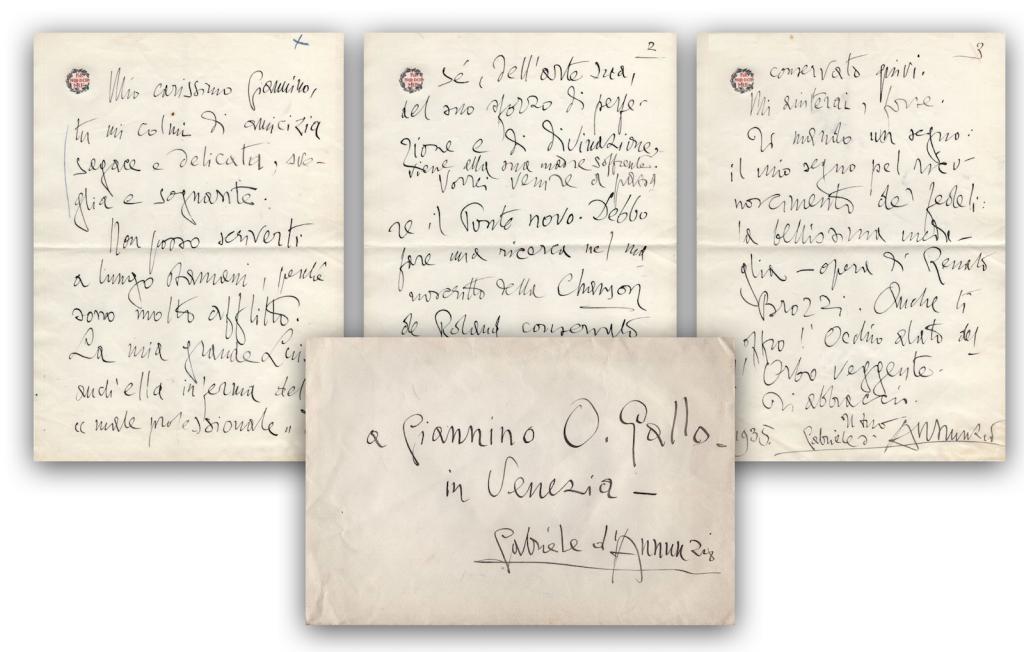 Mio carissimo Giannino,
tu mi colmi di amicizia
sagace e delicata, sve-
glia e sognante.
Non posso scriverti
a lungo stamani, perché
sono molto afflitto.
La mia grande
anch'ella inferma del
«male professionale»
2
sé, dell'arte sua,
del suo sforzo di perfe-
zione e di divinazione,
viene alla sua madre soffrente.
Vorrei venire a passa
re il Ponte novo. Debbo
fare una ricerca nel ma
noscritto della Chanson
de Roland conservato
3
conservato quivi.
Mi aiuterai, forse.
Ti mando un segno:
il mio segno pel rico-
noscimento de' fedeli:
la bellissima meda-
glia – opera di Renato
Brozzi. Anche ti
offro l'Occhio alato del
Orbo veggente.
Ti abbraccio.
Il tuo
1935. Gabriele d'Annunzio
a Giannino O. Gallo –
in Venezia –
Gabriele d'Annunzio